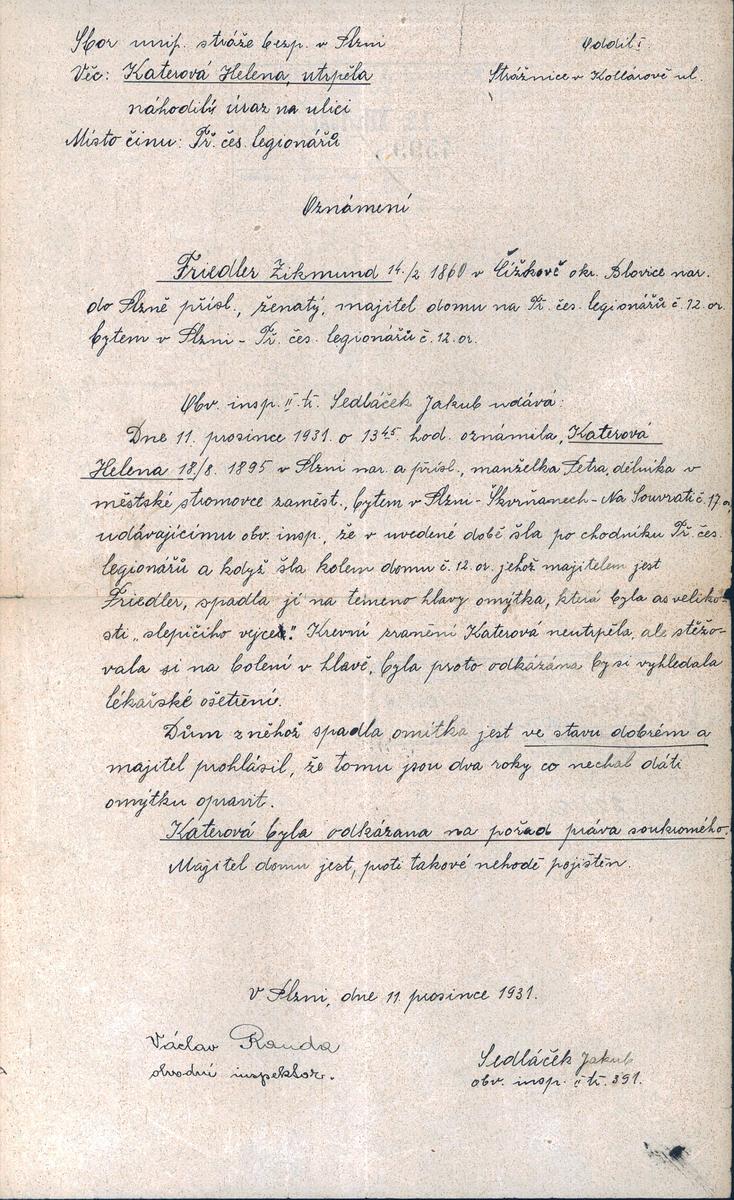 Sbor unif. stráže bezp. v Plzni
Oddíl I.
Věc: Katerová Helena, utrpěla
Strážnice v Kollárově ul.
náhodilý úraz na ulici
Místo činu: Tř. čes. legionářů
Oznámení
Friedler Zikmund 14./2 1860 v Čížkově okr. Blovice nar.
do Plzně přísl., ženatý, majitel domu na Tř. čes. legionářů č. 12. or.
bytem v Plzni - Tř. čes. legionářů č. 12. or.
Obv. insp. II. tř. Sedláček Jakub udává:
Dne 11. prosince 1931. o 13 45 hod. oznámila, Katerová
Helena 18./8. 1895 v Plzni nar. a přísl., manželka Petra, dělníka v
městské stromovce zaměst., bytem v Plzni - Škvrňanech - Na Souvrati č. 17. or,
udávajícímu obv. insp., že v uvedené době šla po chodníku Tř. čes.
legionářů a když šla kolem domu č. 12. or. jehož majitelem jest
Friedler, spadla jí na temeno hlavy omýtka, která byla as veliko-
sti „slepičího vejce". Krevní zranění Katerová neutrpěla, ale stěžo-
vala si na bolení v hlavě, byla proto odkázána by si vyhledala
lékařské ošetření.
Dům z něhož spadla omítka jest ve stavu dobrém a
majitel prohlásil, že tomu jsou dva roky co nechal dáti
omýtku opravit.
Katerová byla odkázana na pořad práva soukromého.
Majitel domu jest, proti takové nehodě pojištěn.
V Plzni, dne 11. prosince 1931.
Václav Randa
obvodní inspektor.
Sedláček Jakub
obv. insp. II. tř. 391.